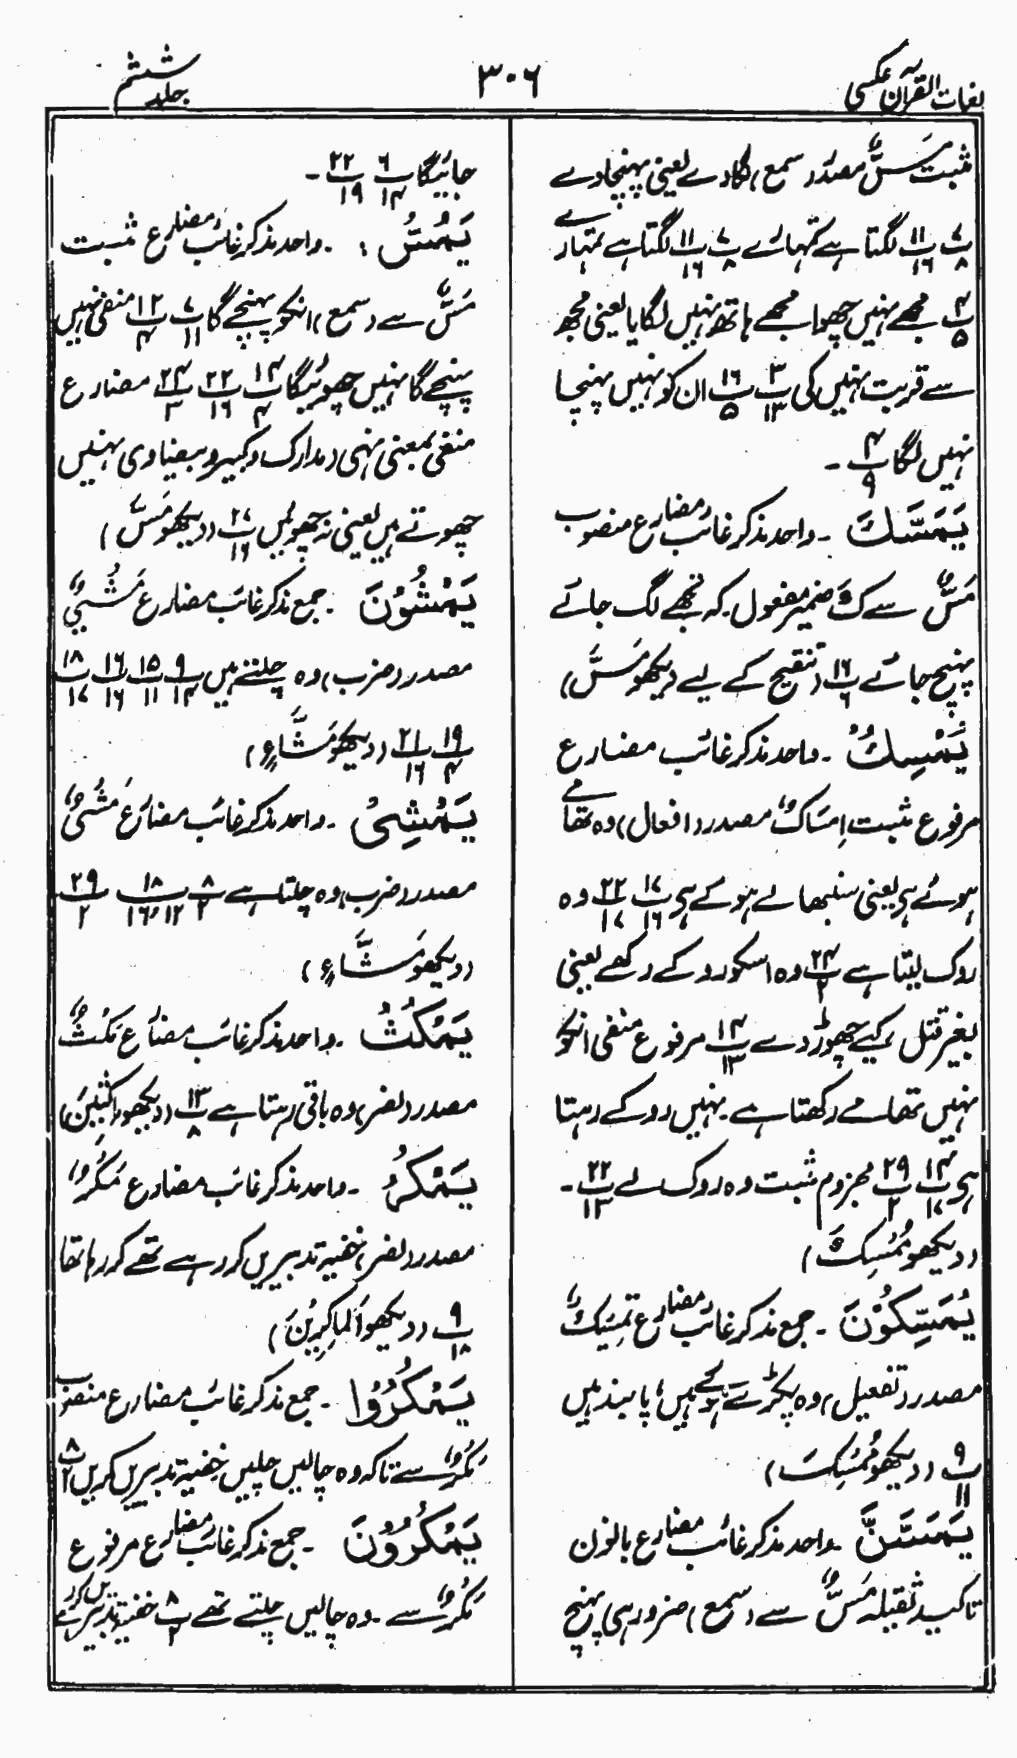 لغات القرآن عکسی
۳۰۶
جلد ششم
مثبت مَسٌّ مصدر (سمع) لگادے یعنی پہنچادے
۷/پ۸ ۱۱/پ۱۶ لگتا ہے تمہارے ۷/پ۸ ۱۱/پ۱۶ لگتا ہے تمہارے
۴/پ۵ مجھے نہیں چھوا مجھے ہاتھ نہیں لگایا یعنی مجھ
سے قربت نہیں کی ۳/پ۱۳ ۱۶/پ۵ ان کو نہیں پہنچا
نہیں لگا ۴/پ۹ ۔
یَمَسَّكَ ۔ واحد مذکر غائب مضارع منصوب
مَسٌّ سے كَ ضمیر مفعول ۔ کہ تجھے لگ جائے
پہنچ جائے ۱۶/پ۶ (تنقیح کے لیے دیکھو مَسَّ)
یُمْسِكُ ۔ واحد مذکر غائب مضارع
مرفوع مثبت اِمْسَاكٌ مصدر (افعال) وہ تھامے
ہوئے ہی یعنی سنبھالے ہوئے ہی ۱۷/پ۱۶ ۲۲/پ۱۷ وہ
روک لیتا ہے ۲۴/پ۲ وہ اسکو روکے رکھے یعنی
بغیر قتل کیے چھوڑ دے ۱۴/پ۱۳ مرفوع منفی انکو
نہیں تھامے رکھتا ہے ۔ نہیں روکے رہتا
ہی ۱۴/پ۱۷ ۲۹/پ۲ مجزوم مثبت وہ روک لے ۲۲/پ۱۳ ۔
(دیکھو مُمْسِكَ)
یُمَسِّکُوْنَ ۔ جمع مذکر غائب مضارع تَمْسِیْكٌ
مصدر (تفعیل) وہ پکڑے ہوئے ہیں، پابند ہیں
۹/پ۱۱ (دیکھو مُمْسِكَ)
یَمَسَّنَّ ۔ واحد مذکر غائب مضارع بانون
تاکید ثقیلہ مَسٌّ سے (سمع) ضرور ہی پہنچ
جائیگا ۶/پ۱۴ ۲۲/پ۱۹ ۔
یَمَسُّ ۔ واحد مذکر غائب مضارع مثبت
مَسٌّ سے (سمع) انکو پہنچے گا ۷/پ۱۱ ۱۲/پ۴ منفی نہیں
پہنچے گا نہیں چھوئیگا ۱۴/پ۴ ۲۲/پ۱۶ ۲۴/پ۳ مضارع
منفی بمعنی نہی (مدارک و کبیر و بیضاوی) نہیں
چھوتے ہیں یعنی نہ چھوئیں ۲۷/پ۱۶ (دیکھو مَسَّ)
یَمْشُوْنَ ۔ جمع مذکر غائب مضارع مَشْیٌ
مصدر (ضرب) وہ چلتے ہیں ۹/پ۱۴ ۱۵/پ۱۱ ۱۶/پ۱۶ ۱۸/پ۱۷
۱۹/پ۴ ۲۱/پ۱۶ (دیکھو مَشَّاءٍ)
یَمْشِیْ ۔ واحد مذکر غائب مضارع مَشْیٌ
مصدر (ضرب) وہ چلتا ہے ۸/پ۲ ۱۸/پ۱۲، ۱۶ ۲۹/پ۲
(دیکھو مَشَّاءٍ)
یَمْکُثُ ۔ واحد مذکر غائب مضارع مَکْثٌ
مصدر (نصر) وہ باقی رہتا ہے ۱۳/پ۸ (دیکھو مَاکِثِیْنَ)
یَمْکُرُ ۔ واحد مذکر غائب مضارع مَکْرٌ
مصدر (نصر) خفیہ تدبیریں کر رہے تھے کر رہا تھا
۹/پ۱۸ (دیکھو اَلْمَاکِرِیْنَ)
یَمْکُرُوْا ۔ جمع مذکر غائب مضارع منصوب
مَکْرٌ سے تاکہ وہ چالیں چلیں خفیہ تدبیریں کریں ۸/پ۲
یَمْکُرُوْنَ ۔ جمع مذکر غائب مضارع مرفوع
مَکْرٌ سے ۔ وہ چالیں چلتے تھے ۸/پ۲ خفیہ تدبیریں کرتے